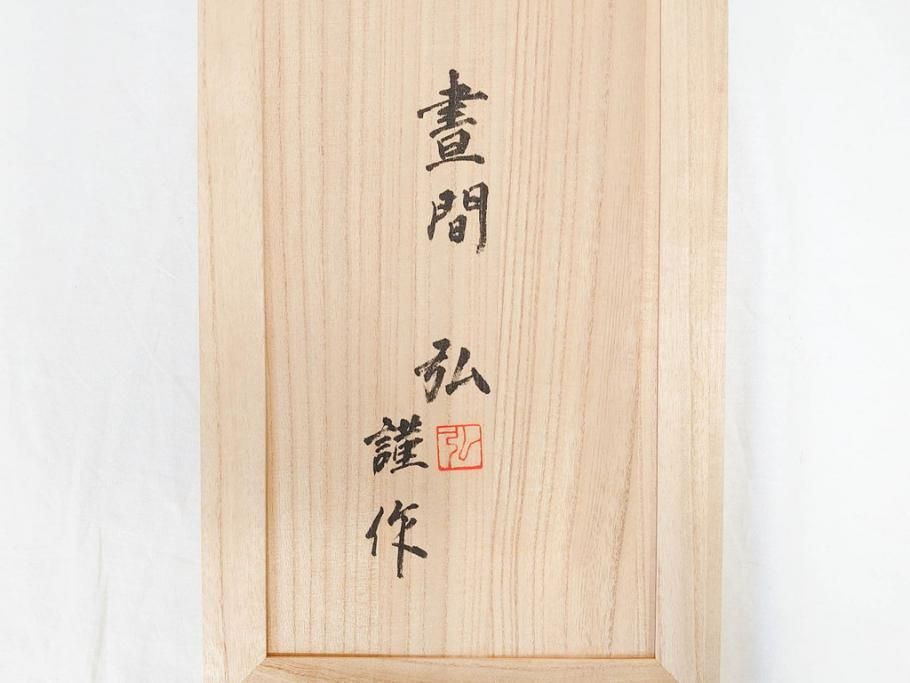 晝間 弘
弘
謹作